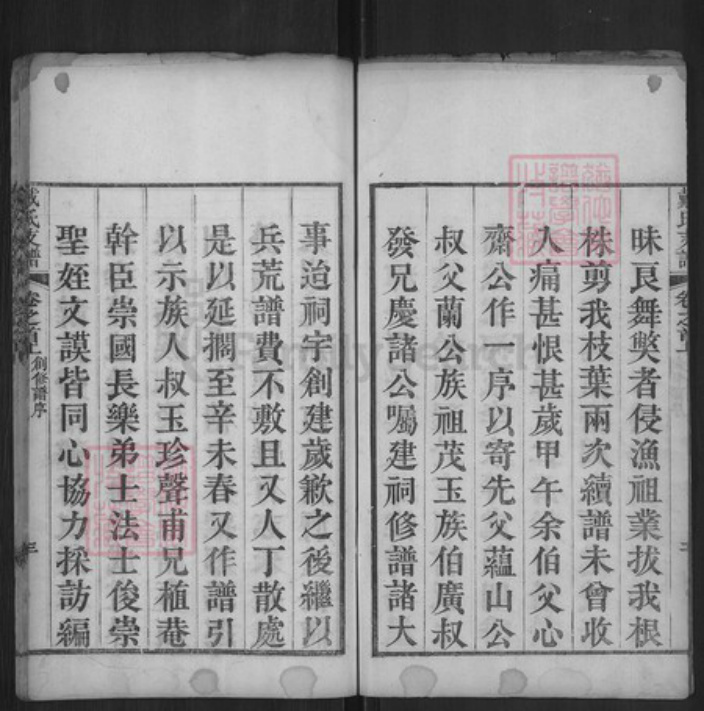 昧良舞獘者侵漁祖業拔我根
株剪我枝葉兩次續譜未曾收
入痛甚恨甚歲甲午余伯父心
齋公作一序以寄先父蘊山公
叔父蘭公族祖茂玉族伯廣叔
發兄慶諸公囑建祠修譜諸大
事迨祠宇創建歲歉之後繼以
兵荒譜費不敷且又人丁散處
是以延擱至辛未春又作譜引
以示族人叔玉珍聲甫兄植菴
幹臣崇國長樂弟士法士俊崇
聖姪文謨皆同心協力採訪編
戴氏支譜
卷之首上
創修譜序
三